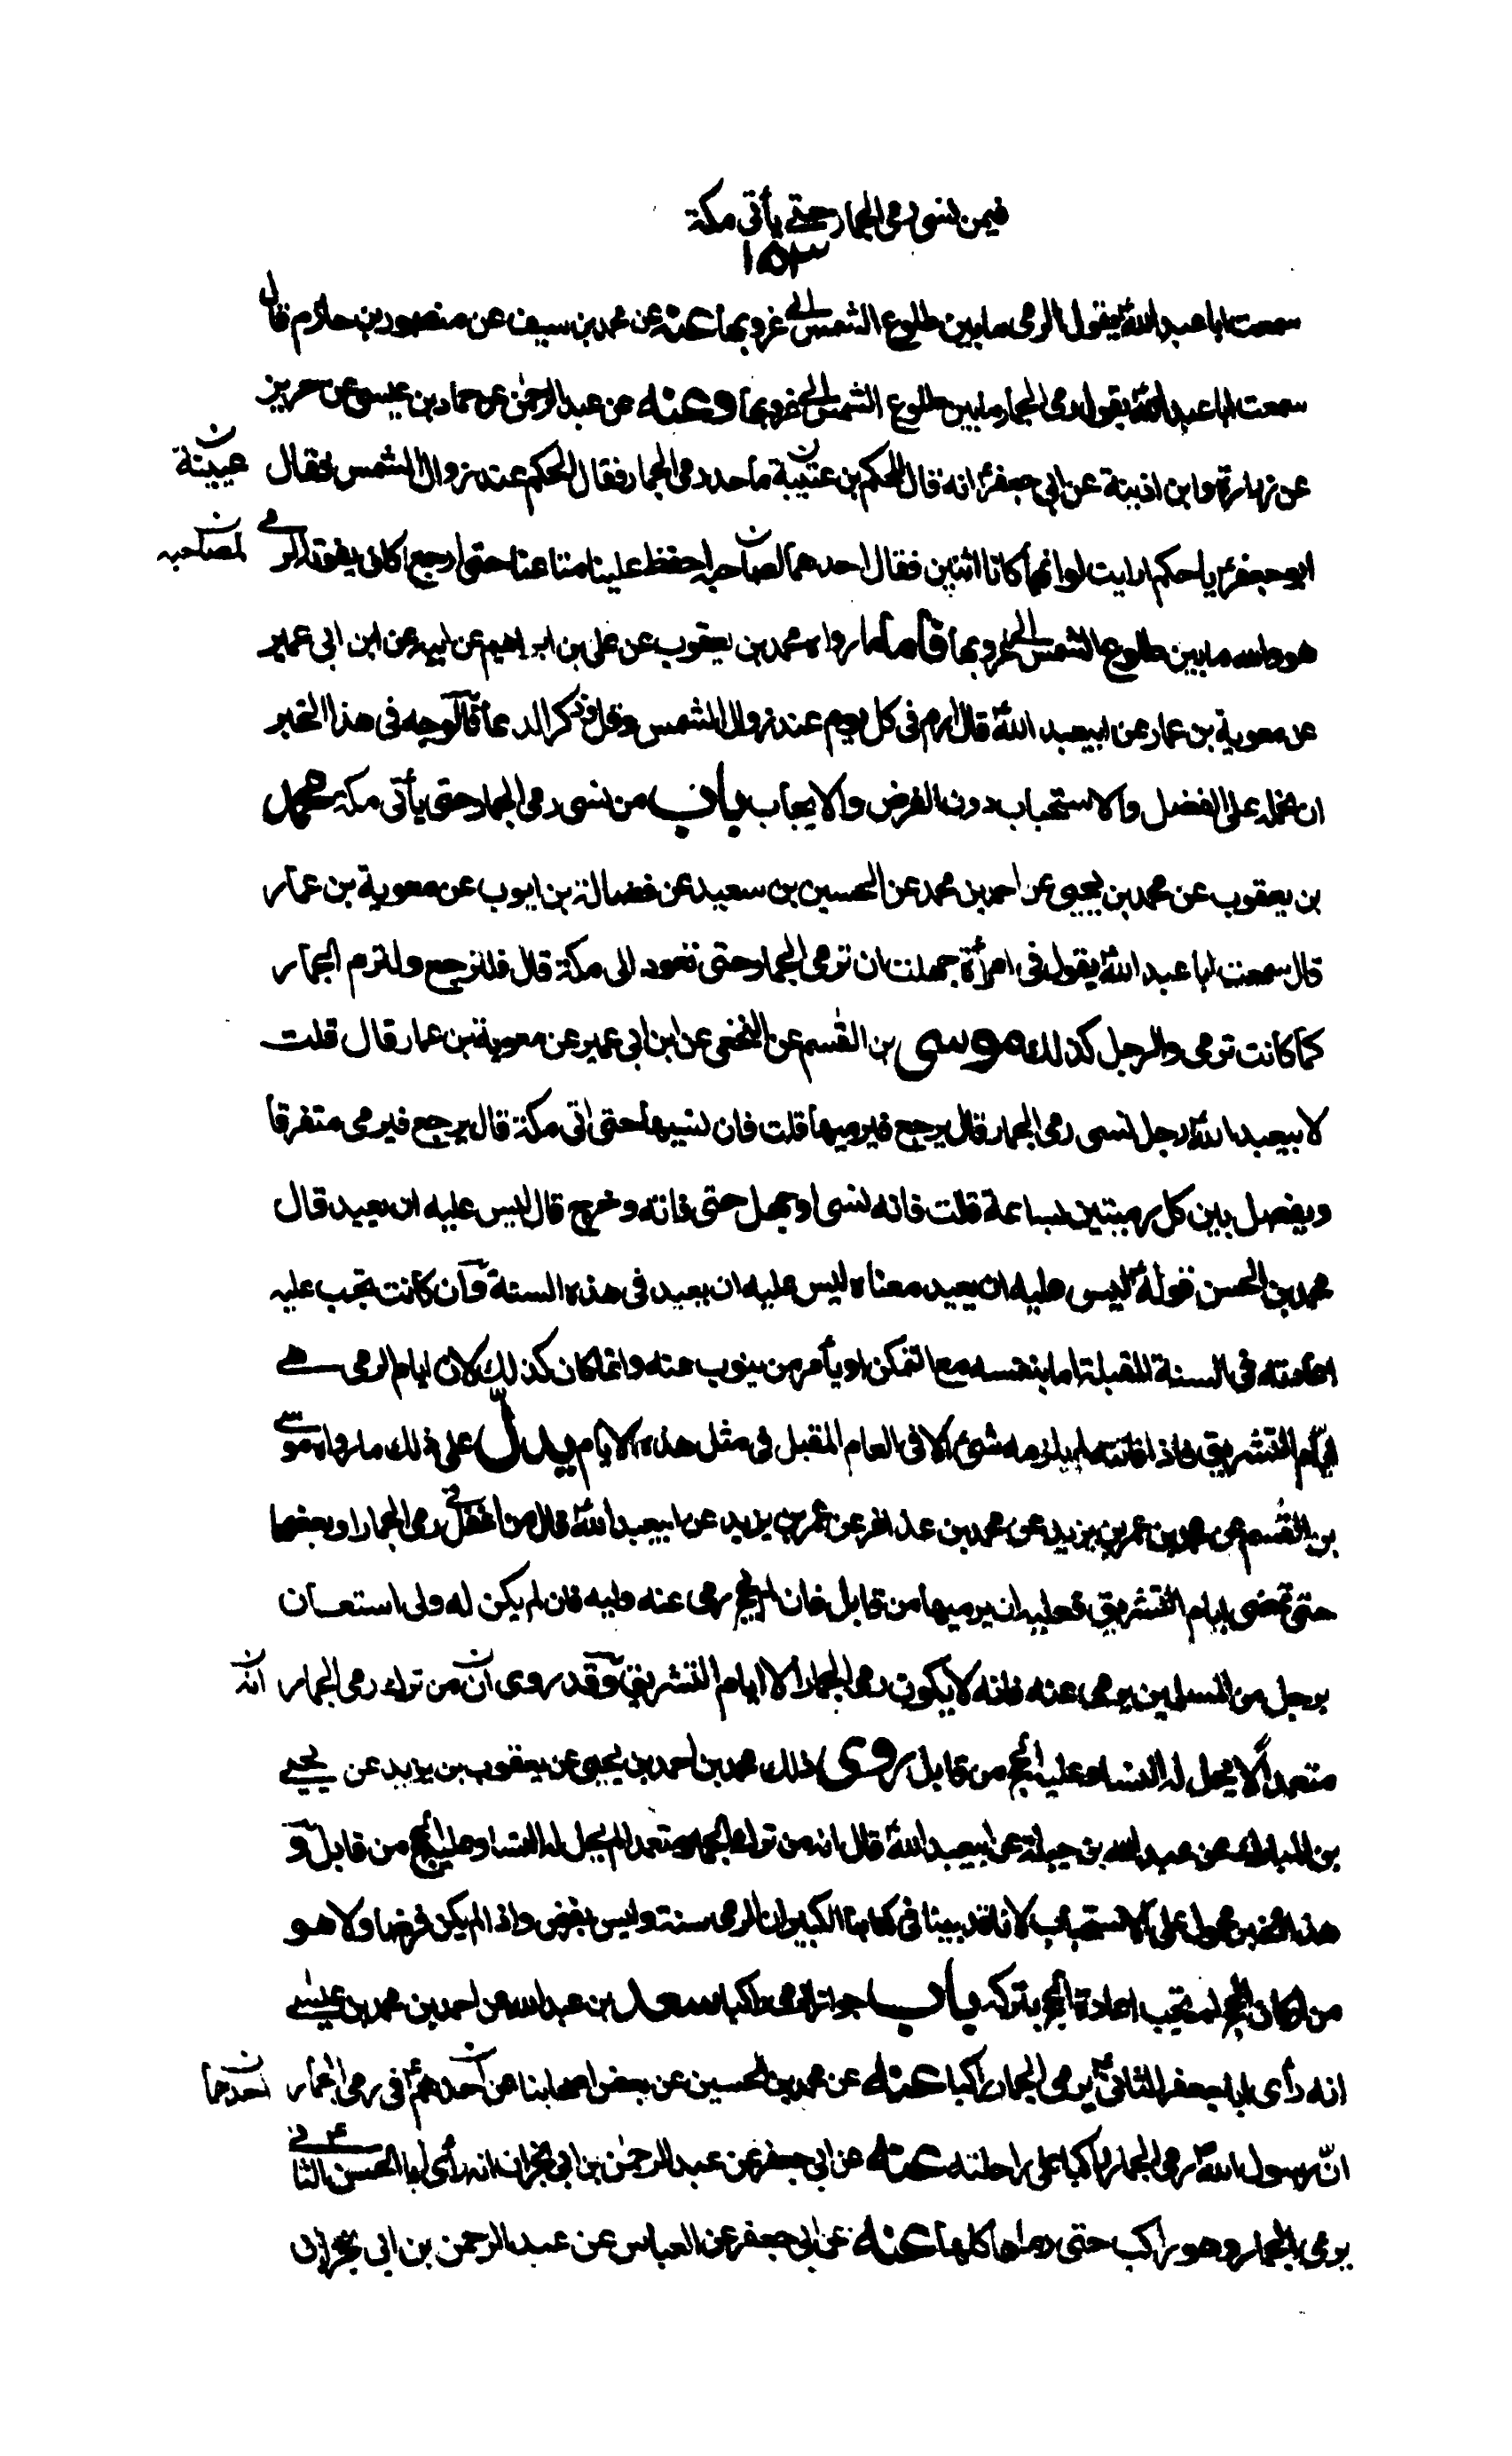 فيمن نسى رمى الجمار حتى يأتى مكة
١٥٣
سمعت ابا عبد اللهؑ يقول الرمى ما بين طلوع الشمس الى غروبها عنه عن محمد بن سيف عن منصور بن حازم قال
سمعت ابا عبد اللهؑ يقول رمى الجمار ما بين طلوع الشمس الى غروبها وعنه عن عبد الرحمن عن حماد بن عيسى عن حريز
عن زرارة وابن اذينة عن ابى جعفرؑ انه قال للحكم بن عتيبة ما حد رمى الجمار فقال الحكم عند زوال الشمس فقال
عيينة ن
ابو جعفرؑ يا حكم ارايت لو انهما كانا اثنين فقال احدهما لصاحبه احفظ علينا متاعنا حتى ارجع اكان يفوته الرمى
لصاحبه ن
هو والله ما بين طلوع الشمس الى غروبها فأما ما رواه محمد بن يعقوب عن على بن ابراهيم عن ابيه عن ابن ابى عمير
عن معوية بن عمار عن ابيعبد اللهؑ قال ارم فى كل يوم عند زوال الشمس وقل وذكر الدعاء فالوجه فى هذا الخبر
ان نحمله على الفضل والاستحباب دون الفرض والايجاب باب من نسى رمى الجمار حتى يأتى مكة محمد
بن يعقوب عن محمد بن يحيى عن احمد بن محمد عن الحسين بن سعيد عن فضالة بن ايوب عن معوية بن عمار
قال سمعت ابا عبد اللهؑ يقول فى امرأة جهلت ان ترمى الجمار حتى تعود الى مكة قال فلترجع ولترم الجمار
كما كانت ترمى والرجل كذلك موسى بن القسم عن النخعى عن ابن ابى عمير عن معوية بن عمار قال قلت
لابيعبد اللهؑ رجل نسى رمى الجمار قال يرجع فيرميها قلت فان نسيها حتى اتى مكة قال يرجع فيرمى متفرقا
ويفصل بين كل رميتين بساعة قلت فانه نسى او جهل حتى فاته وخرج قال ليس عليه ان يعيد قال
محمد بن الحسن قولهؑ ليس عليه ان يعيد معناه ليس عليه ان يعيد فى هذه السنة وان كانت تجب عليه
اعادته فى السنة المقبلة اما بنفسه مع التمكن او يأمر من ينوب عنه وانما كان كذلك لان ايام الرمى هى
ايام التشريق فاذا فاتته لم يلزمه شئ الا فى العام المقبل فى مثل هذه الايام يدل على ذلك ما رواه موسى
بن القسم عن محمد بن عمر بن يزيد عن محمد بن عذافر عن عمر بن يزيد عن ابيعبد اللهؑ قال من اغفل رمى الجمار او بعضها
حتى تمضى ايام التشريق فعليه ان يرميها من قابل فان لم يحج رمى عنه وليه فان لم يكن له ولى استعان
برجل من المسلمين يرمى عنه فانه لا يكون رمى الجمار الا ايام التشريق وقد روى ان من ترك رمى الجمار
انه ن
متعمدا لا يحل له النساء وعليه الحج من قابل روى ذلك محمد بن احمد بن يحيى عن يعقوب بن يزيد عن يحيى
بن المبارك عن عبد الله بن جبلة عن ابيعبد اللهؑ قال انه من ترك الجمار متعمدا لم يحل له النساء وعليه الحج من قابل و
هذا الخبر محمول على الاستحباب لانا قد بينا فى كتابنا الكبير ان الرمى سنة وليس بفرض واذا لم يكن فرضا ولا هو
من اركان الحج لم تجب اعادة الحج بتركه باب جواز الرمى راكبا سعد بن عبد الله عن احمد بن محمد بن عيسى
انه رأى ابا جعفر الثانىؑ يرمى الجمار راكبا عنه عن محمد بن الحسين عن بعض اصحابنا عن احدهمؑ فى رمى الجمار
احدهما ن
انّ رسول اللهؐ رمى الجمار راكبا على راحلته عنه عن ابى جعفر عن عبد الرحمن بن ابى نجران انه رأى ابا الحسن الثانىؑ
يرمى الجمار وهو راكب حتى رماها كلها عنه عن ابى جعفر عن العباس عن عبد الرحمن بن ابى نجران